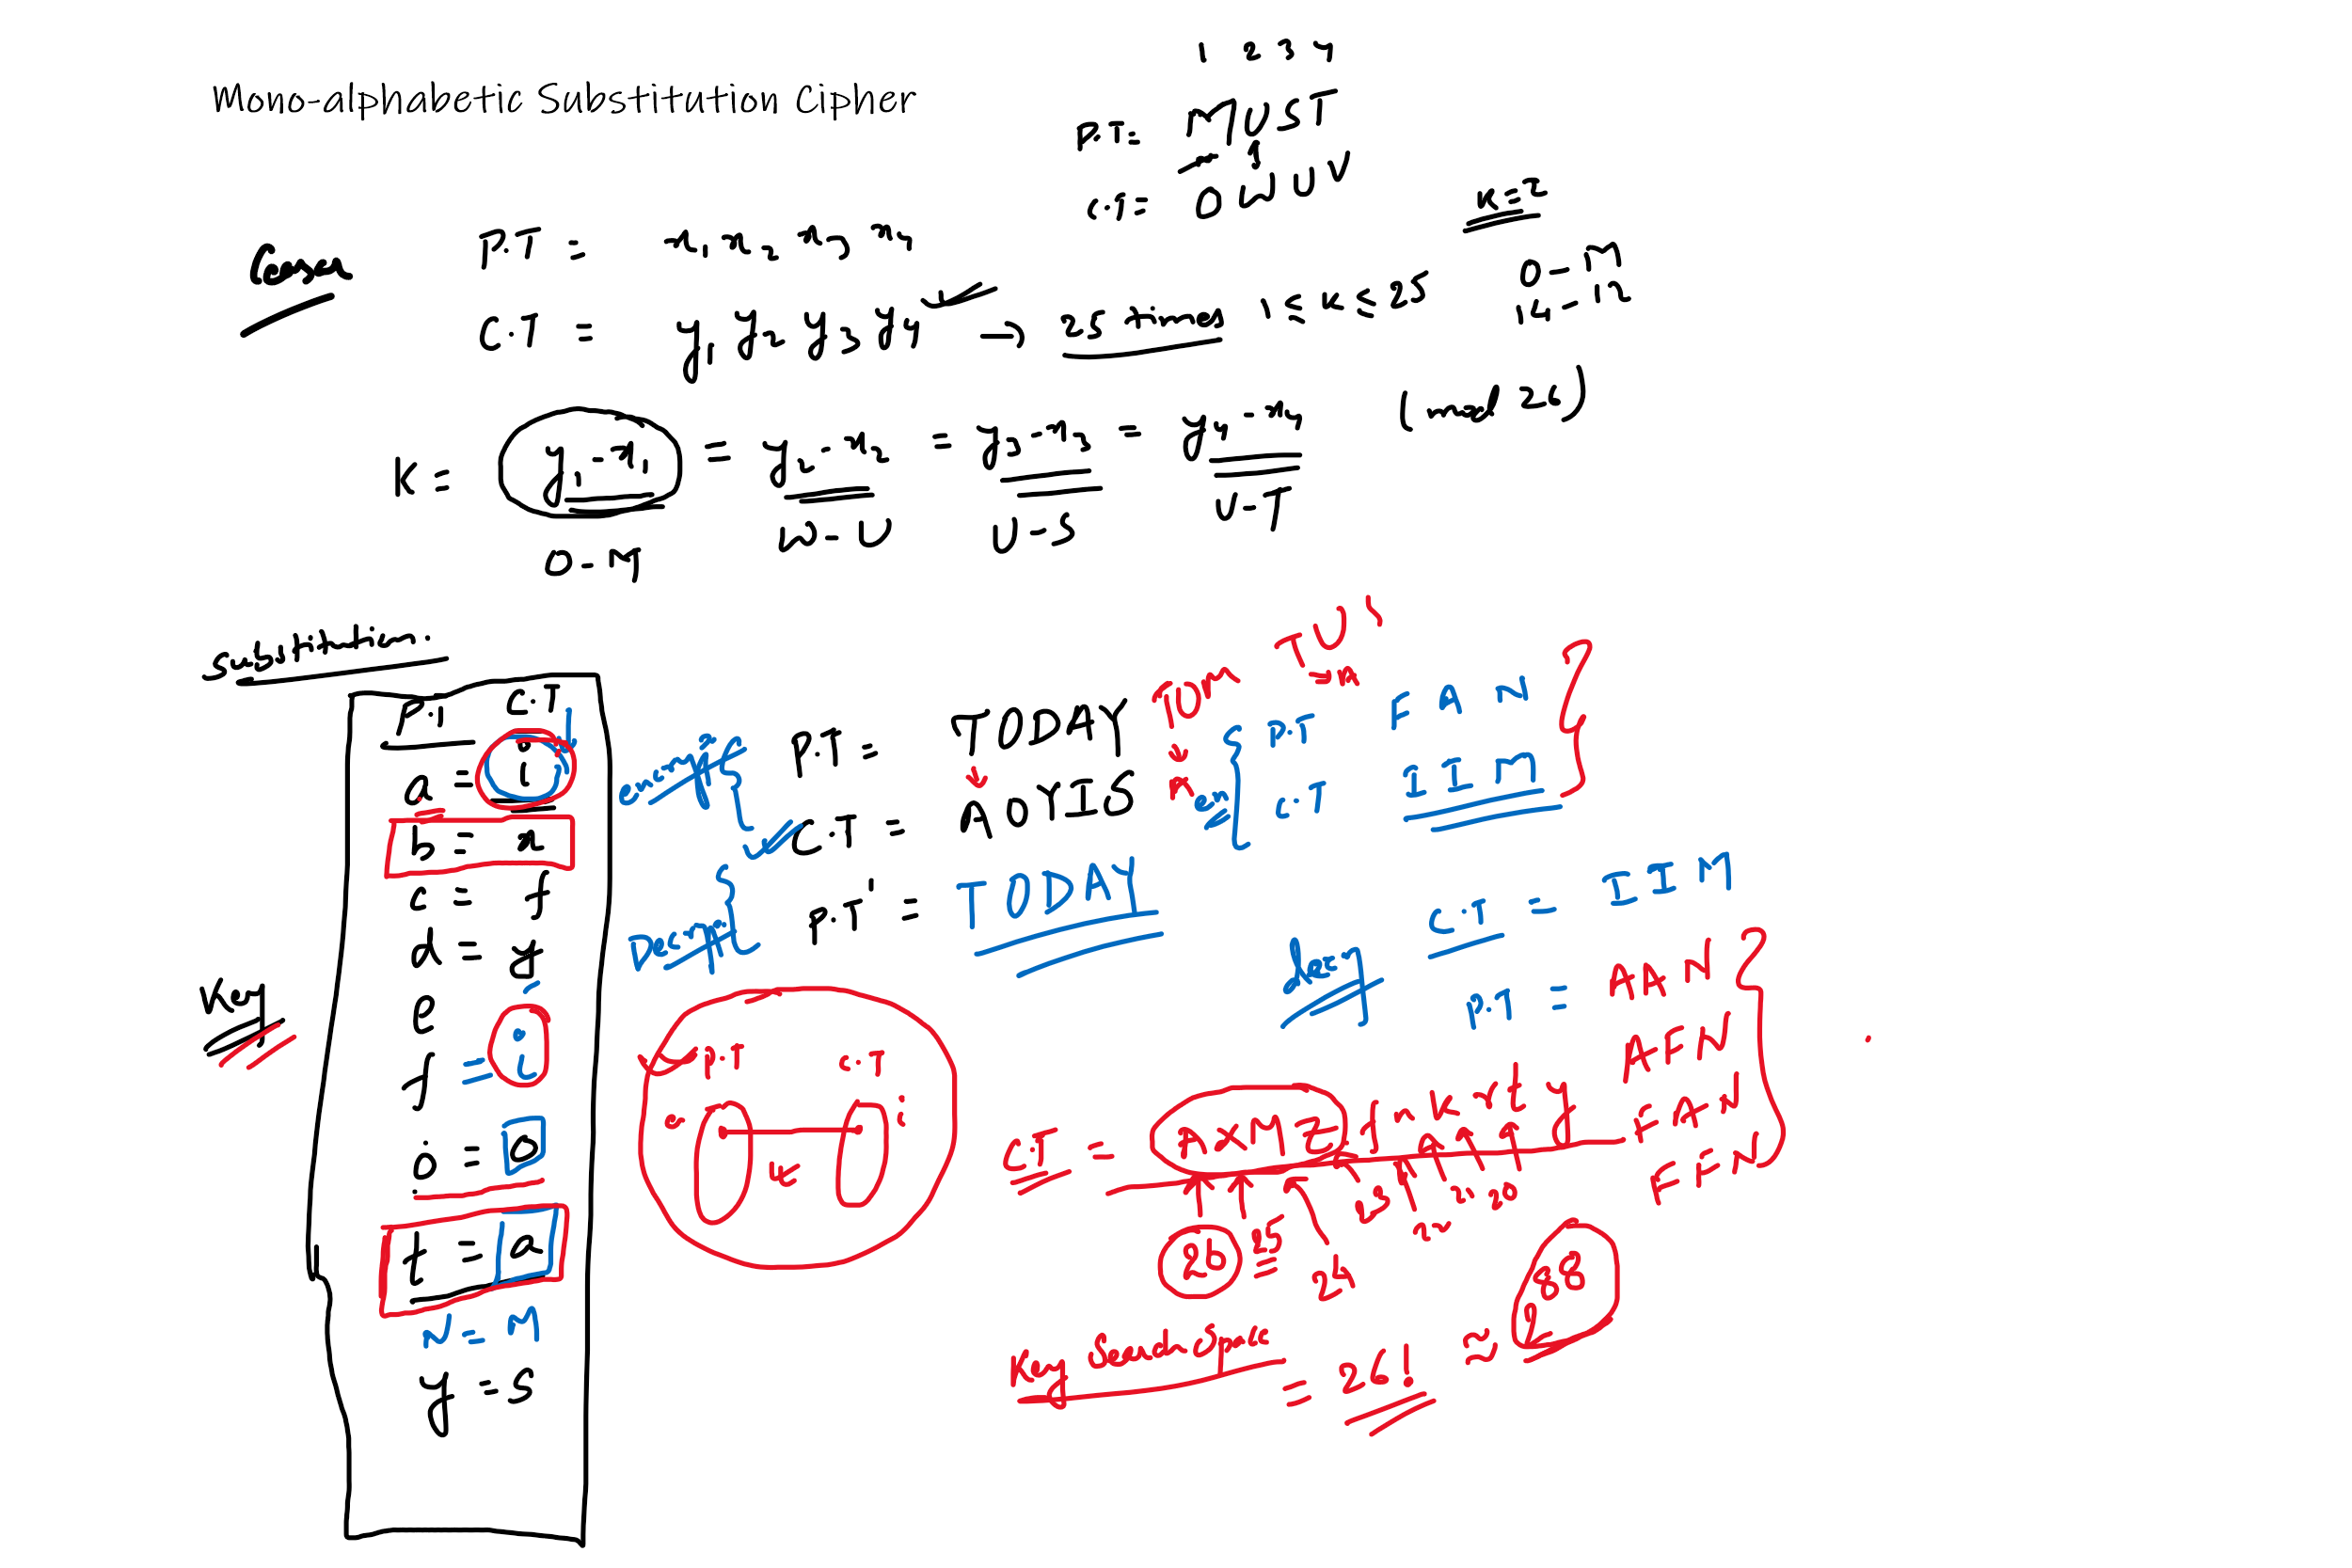 Mono-alphabetic Substitution Cipher
1 2 3 4
P.T = MUST
C.T = O W U V
K = 2
O - M
14 - 12
Caesar
P.T = x1 x2 x3 x4
C.T = y1 y2 y3 y4 → 25 times 1 ≤ K ≤ 25
(mod 26)
K = y1 - x1 = y2 - x2 = y3 - x3 = y4 - x4
O - M W - U U - S V - T
Substitution.
Key
P.T C.T
a = i
b = x
c = f
d = y
e
f = i
o = o
t = a
N = M
y = s
P.T = TODAY
C.T = AOYIS
Decryp
P.T' = TODAY
TOM
TU
P.T FAN
enc
C.T IIM
C.T = IIM
decry
P.T = AAN
AFN
FAN
FFN
P.T C.T
e i
K
C.T =
26 25 24 23 22 21 20
Key Search Space = 26! ≈ 2^88